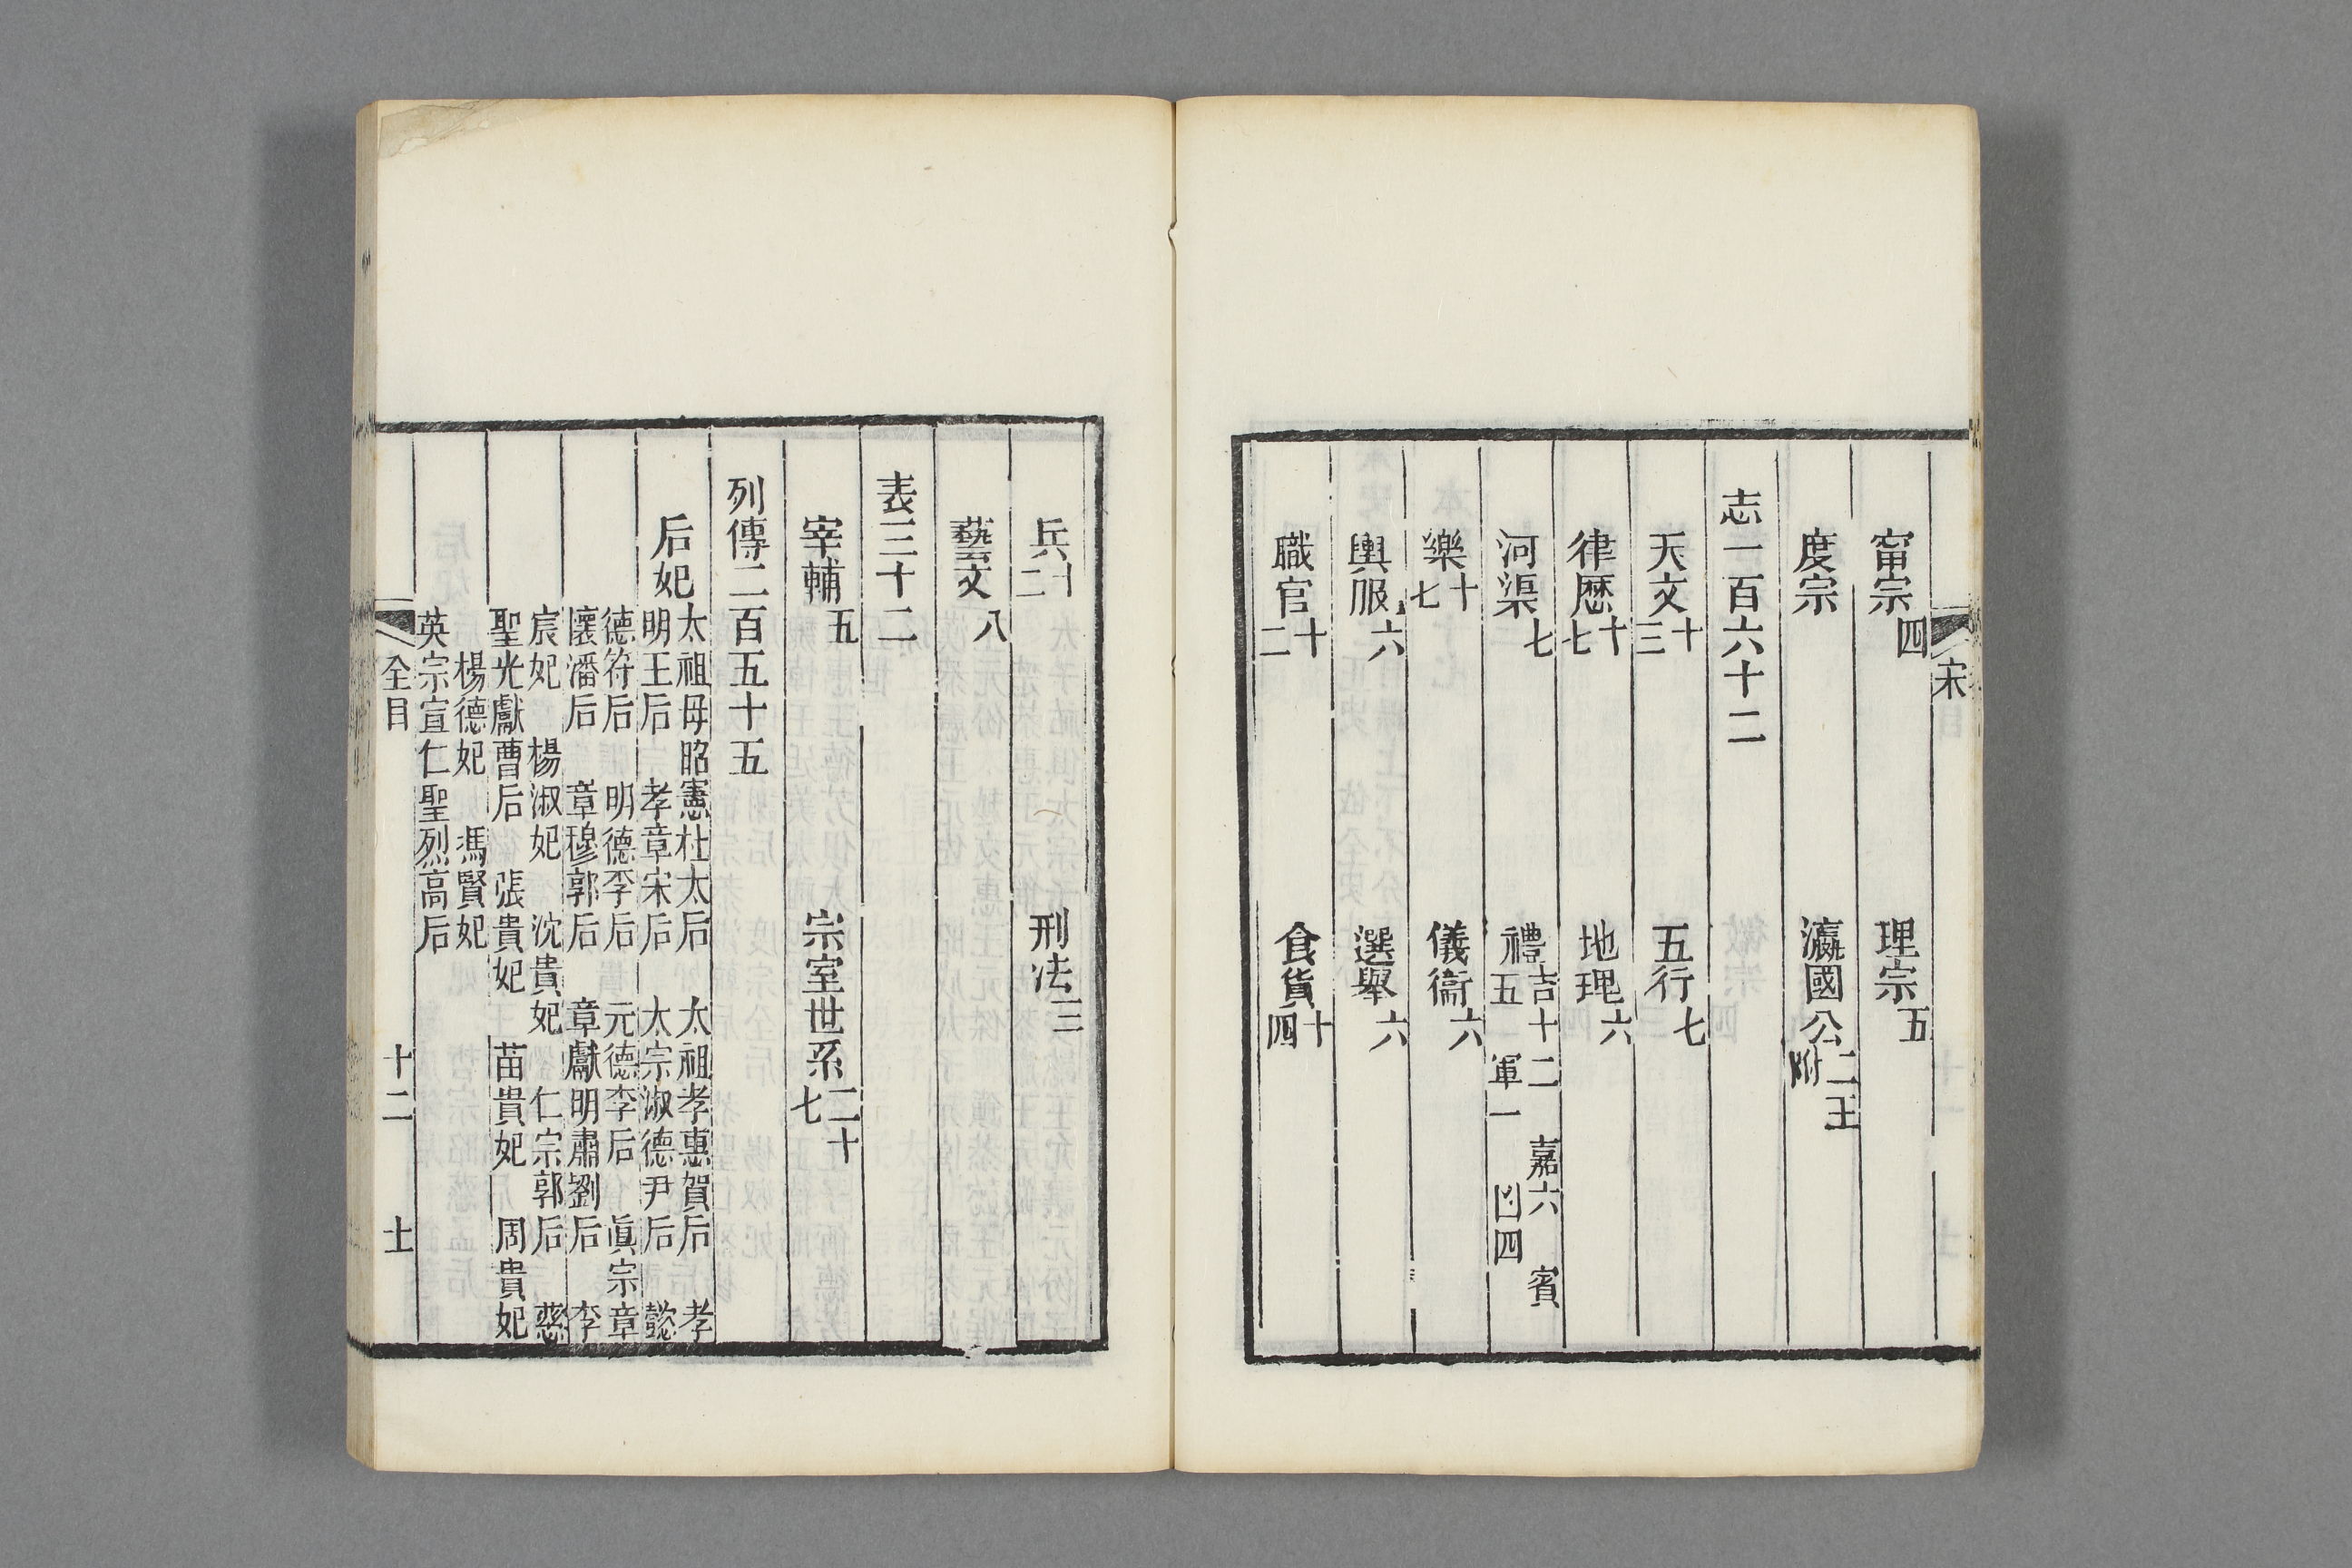 宋
甯宗四　理宗五
度宗　瀛國公二王附
志一百六十二
天文十三　五行七
律厯十七　地理六
河渠七　禮吉十二　嘉六　賓五　軍一　凶四
樂十七　儀衞六
輿服六　選舉六
職官十二　食貨十四
兵十二　刑法三
藝文八
表三十二
宰輔五　宗室世系二十七
列傳二百五十五
后妃太祖母昭憲杜太后　太祖孝惠賀后　孝
明王后　孝章宋后　太宗淑德尹后　懿
德符后　明德李后　元德李后　眞宗章
懷潘后　章穆郭后　章獻明肅劉后　李
宸妃　楊淑妃　沈貴妃　仁宗郭后　慈
聖光獻曹后　張貴妃　苗貴妃　周貴妃
楊德妃　馮賢妃
英宗宣仁聖烈高后
全目　十二　士